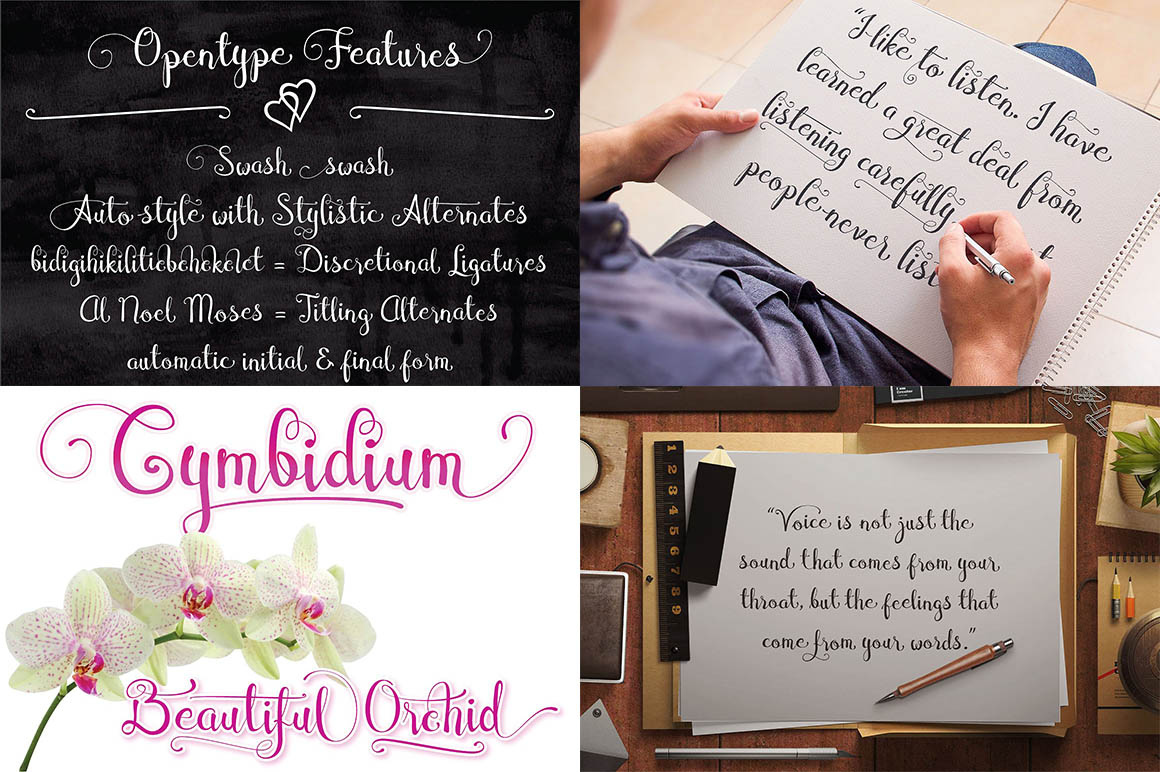 Opentype Features
Swash swash
Auto style with Stylistic Alternates
bidigihikilitiebehekelet = Discretional Ligatures
Al Noel Moses = Titling Alternates
automatic initial & final form
"I like to listen. I have
learned a great deal from
listening carefully
people-never
Cymbidium
Beautiful Orchid
1
2
3
4
5
6
7
8
9
"Voice is not just the
sound that comes from your
throat, but the feelings that
come from your words."